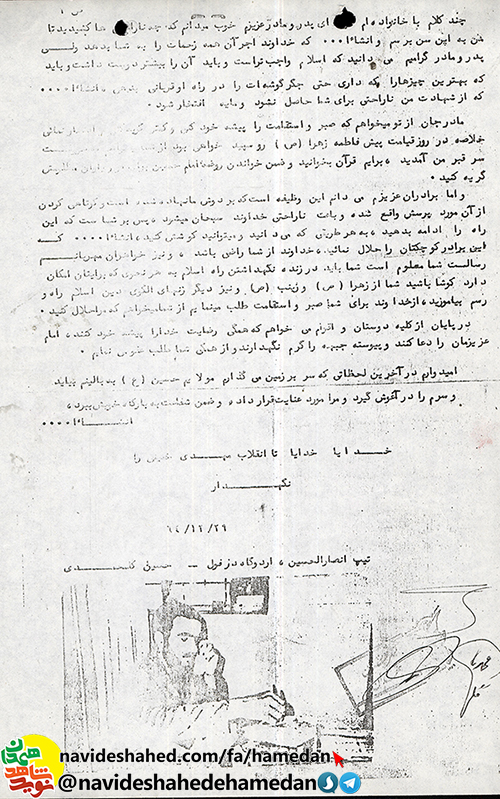 چند کلام با خانواده‌ام ای پدر و مادر عزیزم خوب میدانم که چه ناراحتی ها کشیدید تا
من به این سن برسم و انشاءا۰۰۰۰ که خداوند اجر آن همه زحمات را به شما بدهد ولی
پدر و مادر گرامیم می دانید که اسلام واجب‌تر است و باید آن را بیشتر دوست داشت و باید
که بهترین چیزها را که داری حتی جگرگوشه‌ات را در راه او قربانی بدهی، انشاءا۰۰۰۰
که از شهادت من ناراحتی برای شما حاصل نشود و مایه افتخار شود.
مادر جان از تو میخواهم که صبر و استقامت را پیشه خود کنی و کمتر گریه
خلاصه در روز قیامت پیش فاطمه زهرا (ص) رو سپید خواهی بود
سر قبر من آمدید، برایم قرآن بخوانید و ضمن خواندن روضه امام حسین
گریه کنید.
و اما برادران عزیزم می دانم این وظیفه است که بر دوش ما نهاده شده است و کوتاهی کردن
از آن مورد پرسش واقع شده و باعث ناراحتی خداوند سبحان میشود، پس بر شما ست که این
راه را ادامه بدهید، به هر طریقی که می دانید و میتوانید کوشش کنید، انشاءا۰۰۰۰ که
این برادر کوچکتان را حلال نمائید، خداوند از شما راضی باشد، و نیز خواهران مهربانم
رسالت شما معلوم است شما باید در زنده نگهداشتن راه اسلام به هر نحوی که برایتان امکان
دارد کوشا باشید شما از زهرا (س) و زینب (س) و نیز دیگر زنهای الگوی دین اسلام راه و
رسم بیاموزید، از خداوند برای شما صبر و استقامت طلب مینمایم از شما میخواهم که مرا حلال کنید.
در پایان از کلیه دوستان و اقوام می خواهم که همگی رضایت خدا را پیشه خود کنند، امام
عزیزمان را دعا کنند و پیوسته جبهه را گرم نگهدارند و از همگی شما طلب عفو می نمایم.
امیدوارم در آخرین لحظاتی که سر بر زمین می گذارم مولایم حسین (ع) به بالینم بیاید
و سرم را در آغوش گیرد و مرا مورد عنایت قرار داده و ضمن شفاعت به بارگاه خویش ببرد،
انشاءا۰۰۰۰
خدایا خدایا تا انقلاب مهدی خمینی را
نگهدار
۶۴/۱۲/۲۹
تیپ انصارالحسین، اردوگاه دزفول -
نوید شاهد
همدان
navideshahed.com/fa/hamedan
@navideshahedehamedan